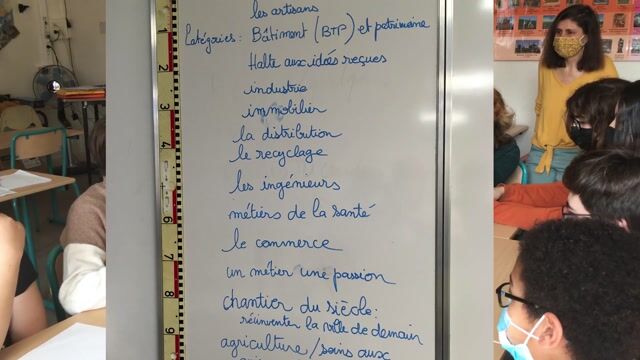 les artisans
Catégories : Bâtiment (BTP) et patrimoine
Halte aux idées reçues
industrie
immobilier
la distribution
le recyclage
les ingénieurs
métiers de la santé
le commerce
un métier une passion
chantier du siècle :
réinventer la ville de demain
agriculture / soins aux
1
2
3
4
6
7
8
9